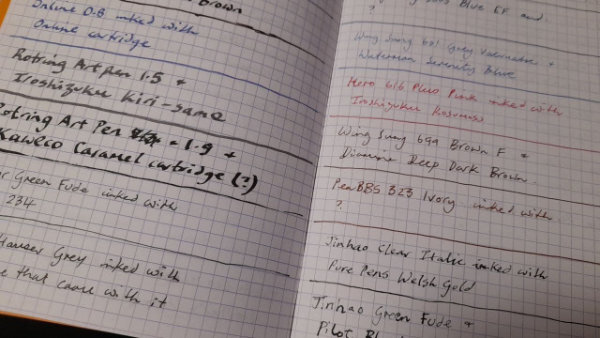 Brown
Online 0.8 inked with
Online cartridge
Rotring Artpen 1.5 +
Iroshizuku Kiri-same
Rotring Art Pen 1.9 +
Kaweco Caramel cartridge (?)
Green Fude inked with
234
Grey inked with
that came with it
Blue EF and
?
Wing Sung 601 Grey Vacumatic +
Waterman Serenity Blue
Hero 616 Plus Pink inked with
Iroshizuku Kosumosu
Wing Sung 699 Brown F +
Diamine Deep Dark Brown
PenBBS 323 Ivory inked with
?
Jinhao Clear Italic inked with
Pure Pens Welsh Gold
Jinhao Green Fude +
Pilot